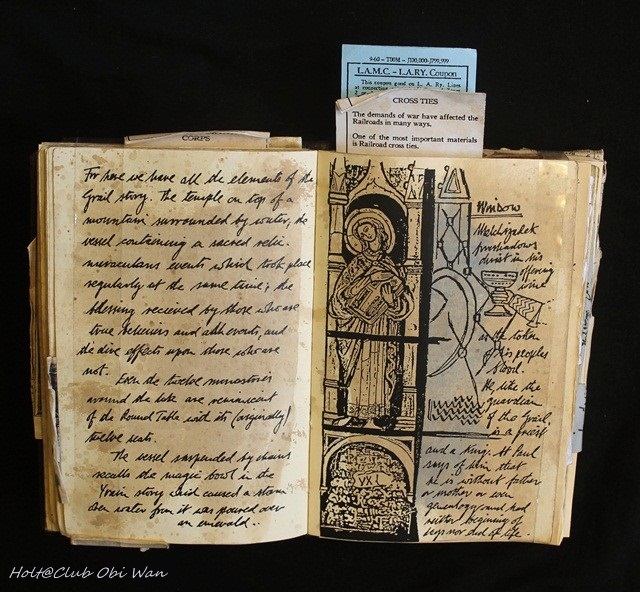 9-60 – T00M – J100,000-J799,999
L.A.M.C. – L.A.RY. Coupon
This coupon good on L. A. Ry. Lines
CROSS TIES
The demands of war have affected the
Railroads in many ways.
One of the most important materials
is Railroad cross ties.
CORPS
For here we have all the elements of the
Grail story. The temple on top of a
mountain surrounded by water, the
vessel containing a sacred relic
miraculous events which took place
regularly at the same time; the
blessing received by those who are
true believers and
the dire effects upon those who are
not.
Even the twelve monasteries
around the lake are reminiscent
of the Round Table with its (originally)
twelve seats.
The vessel suspended by chains
recalls the magic bowl in the
Yvain story which caused a storm
when water from it was poured over
an emerald..
Window
Melchizedek
foreshadows
christ in his
offering
wine
as the token
of his peoples
blood.
He like the
guardian
of the Grail,
is a priest
and a king. St Paul
says of him that
he is without father
or mother or even
genealogy and had
neither beginning of
days nor end of life.
VXI
Holt@Club Obi Wan